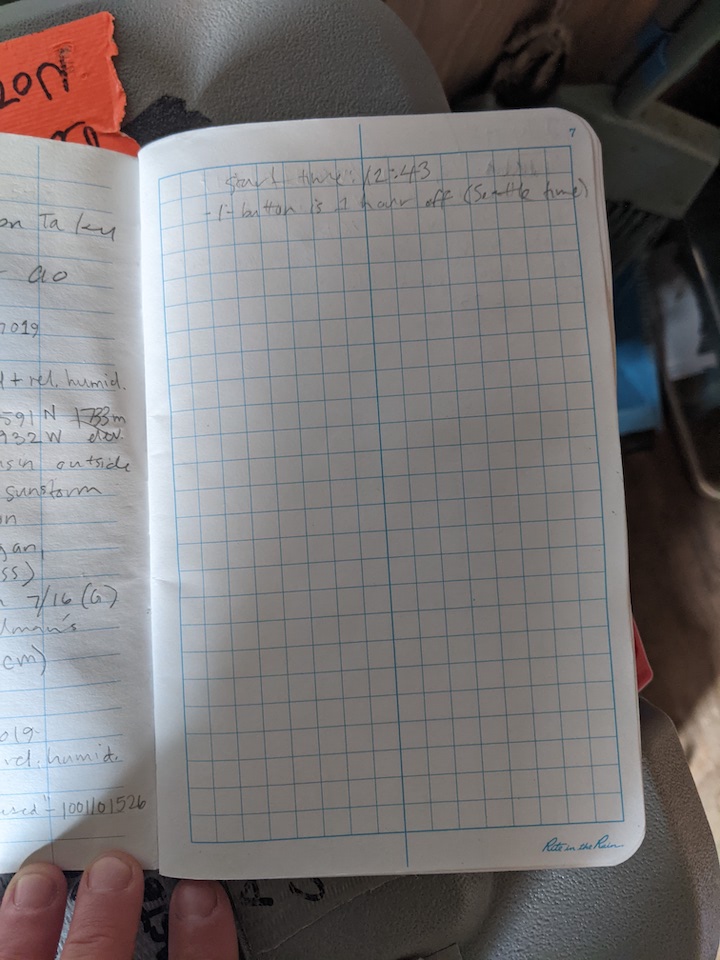 on Takey
- ao
2019
+ rel. humid.
591 N 1733m
932 W elev.
outside
sunstorm
on
gan,
ss)
7/16 (G)
cm)
019
rel. humid.
used" - 1001101526
7
start time: 12:43
- i-button is 1 hour off (Seattle time)
Rite in the Rain